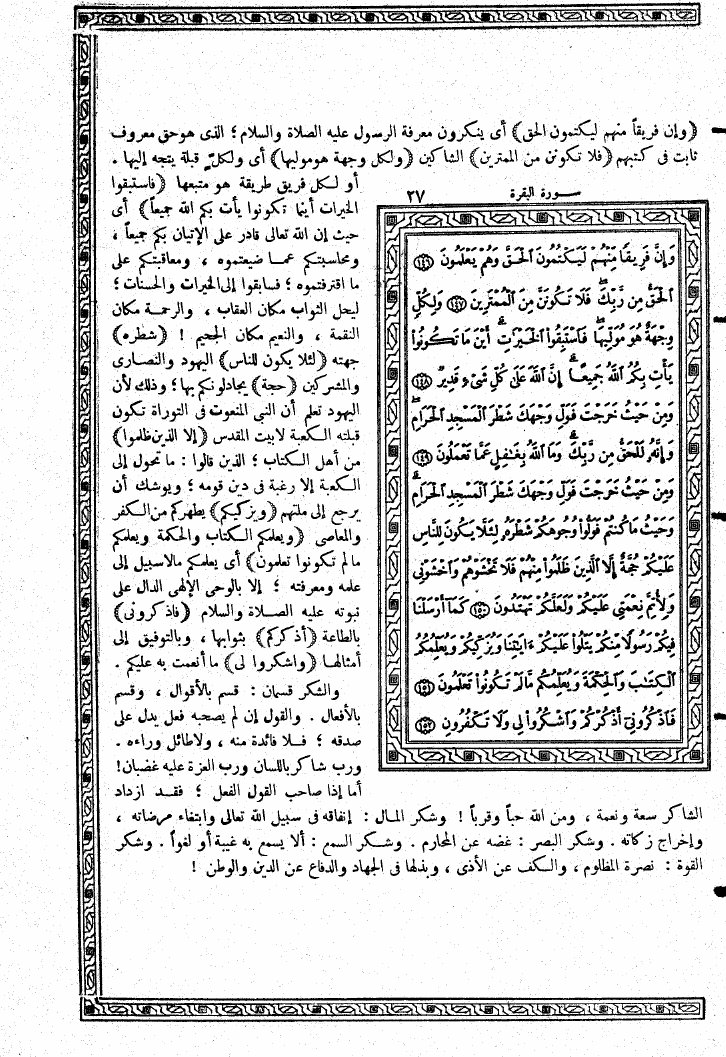 (وإن فريقاً منهم ليكتمون الحق) أى ينكرون معرفة الرسول عليه الصلاة والسلام ؛ الذى هو حق معروف
ثابت فى كتبهم (فلا تكونن من الممترين) الشاكين (ولكل وجهة هو موليها) أى ولكلٍ قبلة يتجه إليها .
أو لكل فريق طريقة هو متبعها (فاستبقوا
الخيرات أينما تكونوا يأت بكم الله جميعاً) أى
حيث إن الله تعالى قادر على الإتيان بكم جميعاً ،
ومحاسبتكم عمـا ضيعتموه ، ومعاقبتكم على
ما اقترفتموه ؛ فسابقوا إلى الخيرات والحسنات ؛
ليحل الثواب مكان العقاب ، والرحمة مكان
النقمة ، والنعيم مكان الجحيم ! (شطره)
جهته (لئلا يكون للناس) اليهود والنصارى
والمشركين (حجة) يجادلونكم بها ؛ وذلك لأن
اليهود تعلم أن النبى المنعوت فى التوراة تكون
قبلته الكعبة لا بيت المقدس (إلا الذين ظلموا)
من أهل الكتاب ؛ الذين قالوا : ما تحول إلى
الكعبة إلا رغبة فى دين قومه ؛ ويوشك أن
يرجع إلى ملتهم (ويزكيكم) يطهركم من الكفر
والمعاصى (ويعلمكم الكتاب والحكمة ويعلمكم
ما لم تكونوا تعلمون) أى يعلمكم مالا سبيل إلى
علمه ومعرفته ؛ إلا بالوحى الإلهى الدال على
نبوته عليه الصـلاة والسلام (فاذكرونى)
بالطاعة (أذكركم) بثوابها ، وبالتوفيق إلى
أمثالهـا (واشكروا لى) ما أنعمت به عليكم .
والشكر قسمان : قسم بالأقوال ، وقسم
بالأفعال . والقول إن لم يصحبه فعل يدل على
صدقه ؛ فـلا فائدة منه ، ولا طائل وراءه .
ورب شاكر باللسان ورب العزة عليه غضبان !
أما إذا صاحب القول الفعل ؛ فقـد ازداد
سـورة البقرة
٢٧
وَإِنَّ فَرِيقًا مِّنْهُمْ لَيَكْتُمُونَ ٱلْحَقَّ وَهُمْ يَعْلَمُونَ ﴿١٤٦﴾
ٱلْحَقُّ مِن رَّبِّكَ فَلَا تَكُونَنَّ مِنَ ٱلْمُمْتَرِينَ ﴿١٤٧﴾ وَلِكُلٍّ
وِجْهَةٌ هُوَ مُوَلِّيهَا فَٱسْتَبِقُوا۟ ٱلْخَيْرَٰتِ أَيْنَ مَا تَكُونُوا۟
يَأْتِ بِكُمُ ٱللَّهُ جَمِيعًا إِنَّ ٱللَّهَ عَلَىٰ كُلِّ شَىْءٍ قَدِيرٌ ﴿١٤٨﴾
وَمِنْ حَيْثُ خَرَجْتَ فَوَلِّ وَجْهَكَ شَطْرَ ٱلْمَسْجِدِ ٱلْحَرَامِ
وَإِنَّهُۥ لَلْحَقُّ مِن رَّبِّكَ وَمَا ٱللَّهُ بِغَٰفِلٍ عَمَّا تَعْمَلُونَ ﴿١٤٩﴾
وَمِنْ حَيْثُ خَرَجْتَ فَوَلِّ وَجْهَكَ شَطْرَ ٱلْمَسْجِدِ ٱلْحَرَامِ
وَحَيْثُ مَا كُنتُمْ فَوَلُّوا۟ وُجُوهَكُمْ شَطْرَهُۥ لِئَلَّا يَكُونَ لِلنَّاسِ
عَلَيْكُمْ حُجَّةٌ إِلَّا ٱلَّذِينَ ظَلَمُوا۟ مِنْهُمْ فَلَا تَخْشَوْهُمْ وَٱخْشَوْنِى
وَلِأُتِمَّ نِعْمَتِى عَلَيْكُمْ وَلَعَلَّكُمْ تَهْتَدُونَ ﴿١٥٠﴾ كَمَآ أَرْسَلْنَا
فِيكُمْ رَسُولًا مِّنكُمْ يَتْلُوا۟ عَلَيْكُمْ ءَايَٰتِنَا وَيُزَكِّيكُمْ وَيُعَلِّمُكُمُ
ٱلْكِتَٰبَ وَٱلْحِكْمَةَ وَيُعَلِّمُكُم مَّا لَمْ تَكُونُوا۟ تَعْلَمُونَ ﴿١٥١﴾
فَٱذْكُرُونِىٓ أَذْكُرْكُمْ وَٱشْكُرُوا۟ لِى وَلَا تَكْفُرُونِ ﴿١٥٢﴾
الشاكر سعة ونعمة ، ومن الله حباً وقرباً ! وشكر المـال : إنفاقه فى سبيل الله تعالى وابتغاء مرضاته ،
وإخراج زكاته . وشكر البصر : غضه عن المحارم . وشـكر السمع : ألا يسمع به غيبة أو لغواً . وشكر
القوة : نصرة المظلوم ، والـكف عن الأذى ، وبذلها فى الجهاد والدفاع عن الدين والوطن !